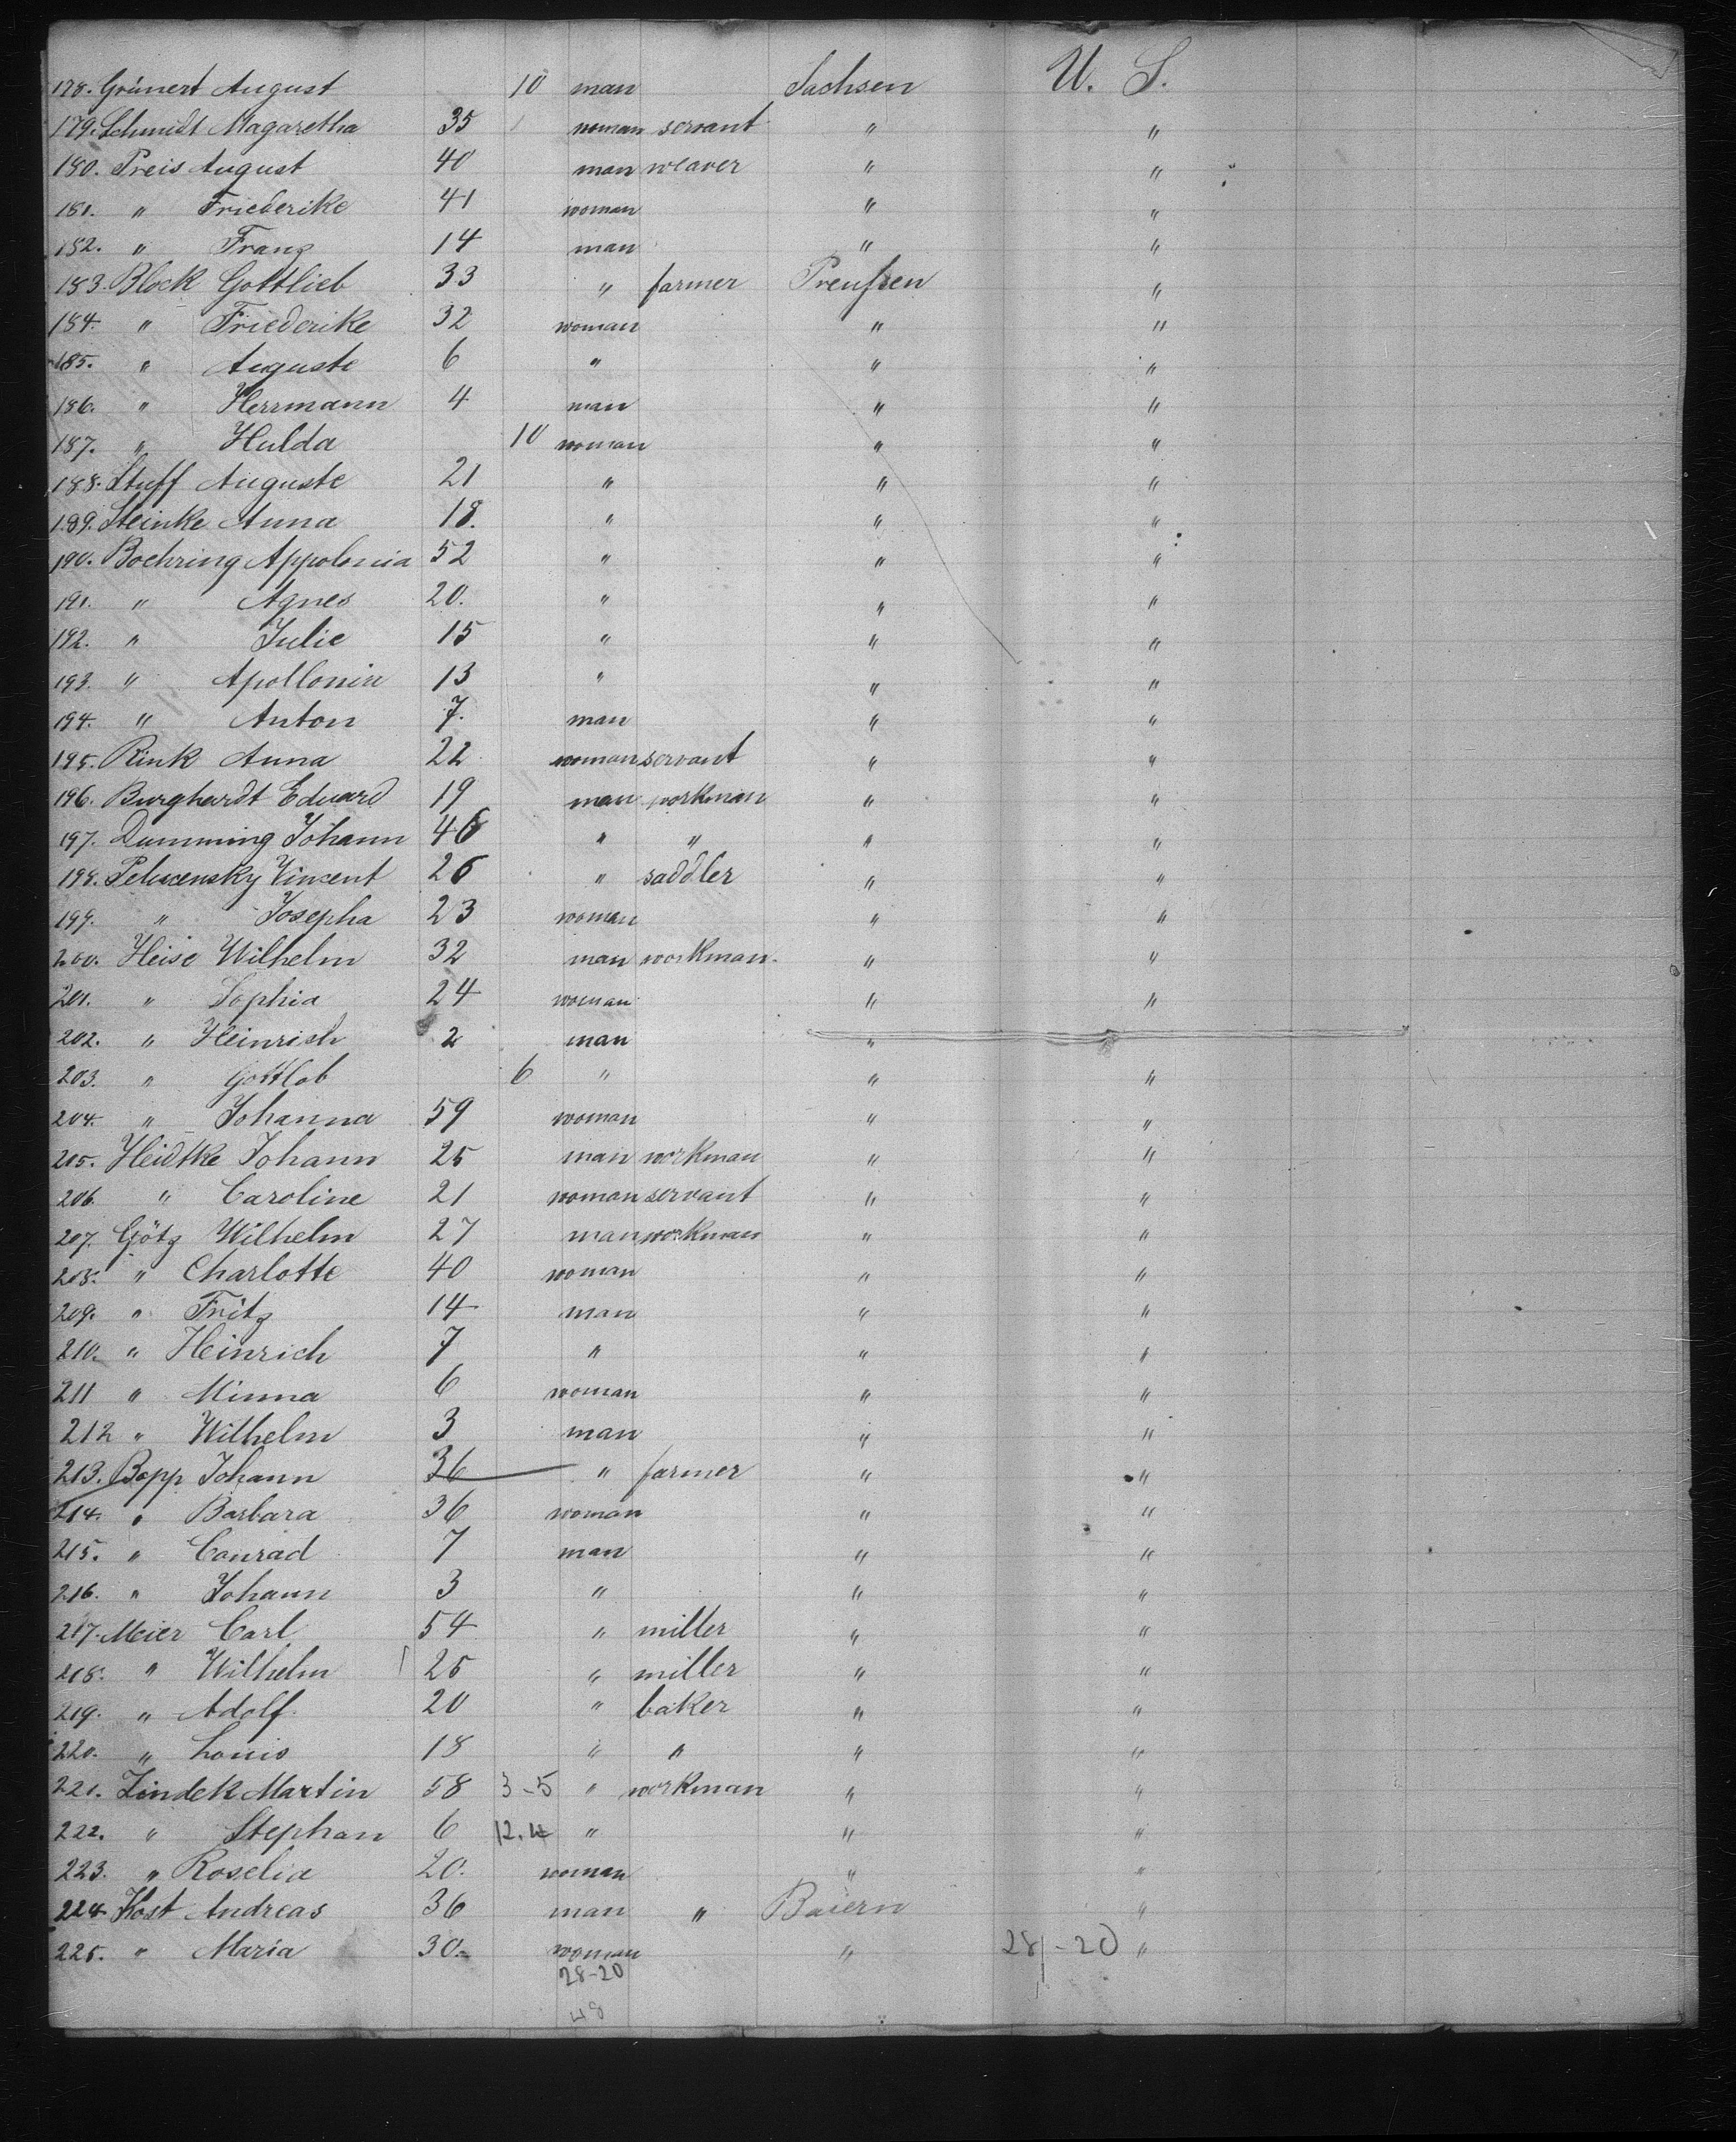 178. Grünert August 10 man Sachsen U. S.
179. Schmidt Magaretha 35 woman servant " "
180. Preis August 40 man weaver " "
181. " Friederike 41 woman " "
182. " Franz 14 man " "
183. Block Gottlieb 33 " farmer Preußen "
184. " Friederike 32 woman " "
185. " Auguste 6 " " "
186. " Herrmann 4 man " "
187. " Hulda 10 woman " "
188. Stuff Auguste 21 " " "
189. Steinke Anna 18. " " "
190. Boehring Appolonia 52 " " "
191. " Agnes 20. " " "
192. " Julie 15 " " "
193. " Apollonia 13 " " "
194. " Anton 7. man " "
195. Rink Anna 22 woman servant " "
196. Burghardt Eduard 19 man workman " "
197. Dumming Johann 46 " " " "
198. Vincent 26 " saddler " "
199. " Josepha 23 woman " "
200. Heise Wilhelm 32 man workman. " "
201. " Sophia 24 woman " "
202. " Heinrich 2 man "
203. " Gottlob 6 " " "
204. " Johanna 59 woman " "
205. Heidtke Johann 25 man workman " "
206. " Caroline 21 woman servant " "
207. Götz Wilhelm 27 man workman " "
208. " Charlotte 40 woman " "
209. " Fritz 14 man " "
210. " Heinrich 7 " " "
211 " Minna 6 woman " "
212 " Wilhelm 3 man " "
213. Bopp Johann 36 " farmer " "
214. " Barbara 36 woman " "
215. " Conrad 7 man " "
216. " Johann 3 " " "
217. Meier Carl 54 " miller " "
218. " Wilhelm 25 " miller " "
219. " Adolf. 20 " baker " "
220. " Louis 18 " " " "
221. Zindek Martin 58 3-5 " workman " "
222. " Stephan 6 12.4 " " "
223. " Roselia 20. woman " "
224 Kost Andreas 36 man " Baiern "
225. " Maria 30. woman " 28-20 "
28-20
48